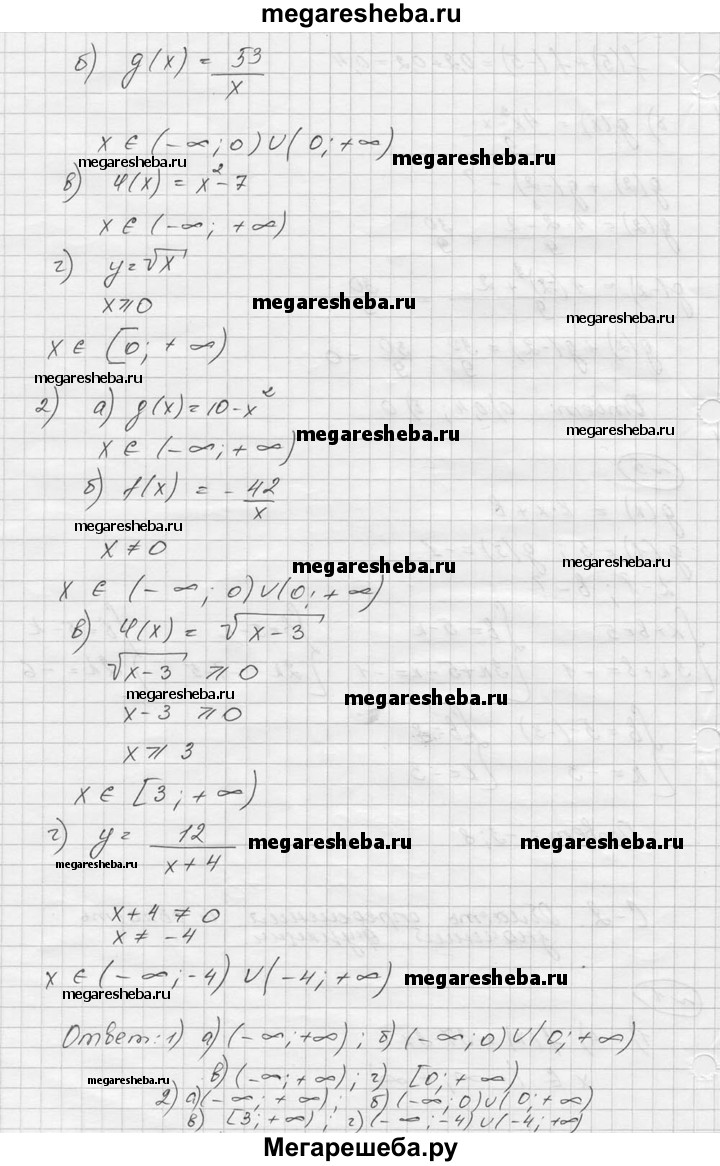 megaresheba.ru
б) g(x) = 53/x
x ∈ (-∞; 0) ∪ (0; +∞)
megaresheba.ru
megaresheba.ru
в) φ(x) = x² - 7
x ∈ (-∞; +∞)
г) y = √x
x ⩾ 0
megaresheba.ru
megaresheba.ru
x ∈ [0; +∞)
megaresheba.ru
2) а) g(x) = 10 - x²
megaresheba.ru
megaresheba.ru
x ∈ (-∞; +∞)
б) f(x) = - 42/x
megaresheba.ru
x ≠ 0
megaresheba.ru
megaresheba.ru
x ∈ (-∞; 0) ∪ (0; +∞)
в) φ(x) = √x-3
√x-3 ⩾ 0
megaresheba.ru
megaresheba.ru
megaresheba.ru
x - 3 ⩾ 0
x ⩾ 3
x ∈ [3; +∞)
г) y = 12/(x+4)
megaresheba.ru
megaresheba.ru
megaresheba.ru
x + 4 ≠ 0
x ≠ -4
x ∈ (-∞; -4) ∪ (-4; +∞)
megaresheba.ru
megaresheba.ru
Ответ: 1) а) (-∞; +∞); б) (-∞; 0) ∪ (0; +∞)
в) (-∞; +∞); г) [0; +∞)
megaresheba.ru
2) а) (-∞; +∞); б) (-∞; 0) ∪ (0; +∞)
в) [3; +∞); г) (-∞; -4) ∪ (-4; +∞)
megaresheba.ru
Мегарешеба.ру